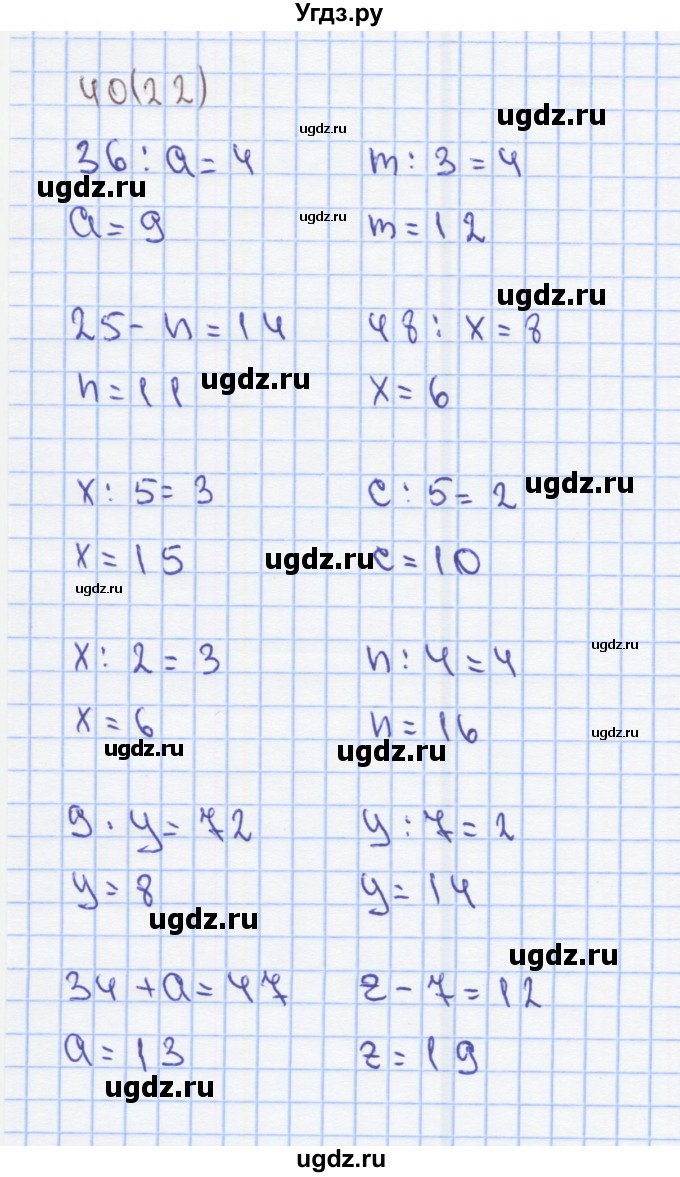 Угдз.ру
40(22)
ugdz.ru ugdz.ru
36 : a = 4 m : 3 = 4
ugdz.ru ugdz.ru
a = 9 ugdz.ru m = 12
ugdz.ru
25 - n = 14 48 : x = 8
n = 11 ugdz.ru x = 6
x : 5 = 3 c : 5 = 2 ugdz.ru
x = 15 ugdz.ru c = 10
ugdz.ru
x : 2 = 3 n : 4 = 4 ugdz.ru
x = 6 n = 16 ugdz.ru
ugdz.ru ugdz.ru
9 · y = 72 y : 7 = 2
y = 8 y = 14
ugdz.ru
ugdz.ru
34 + a = 47 z - 7 = 12
a = 13 z = 19
ugdz.ru
ugdz.ru